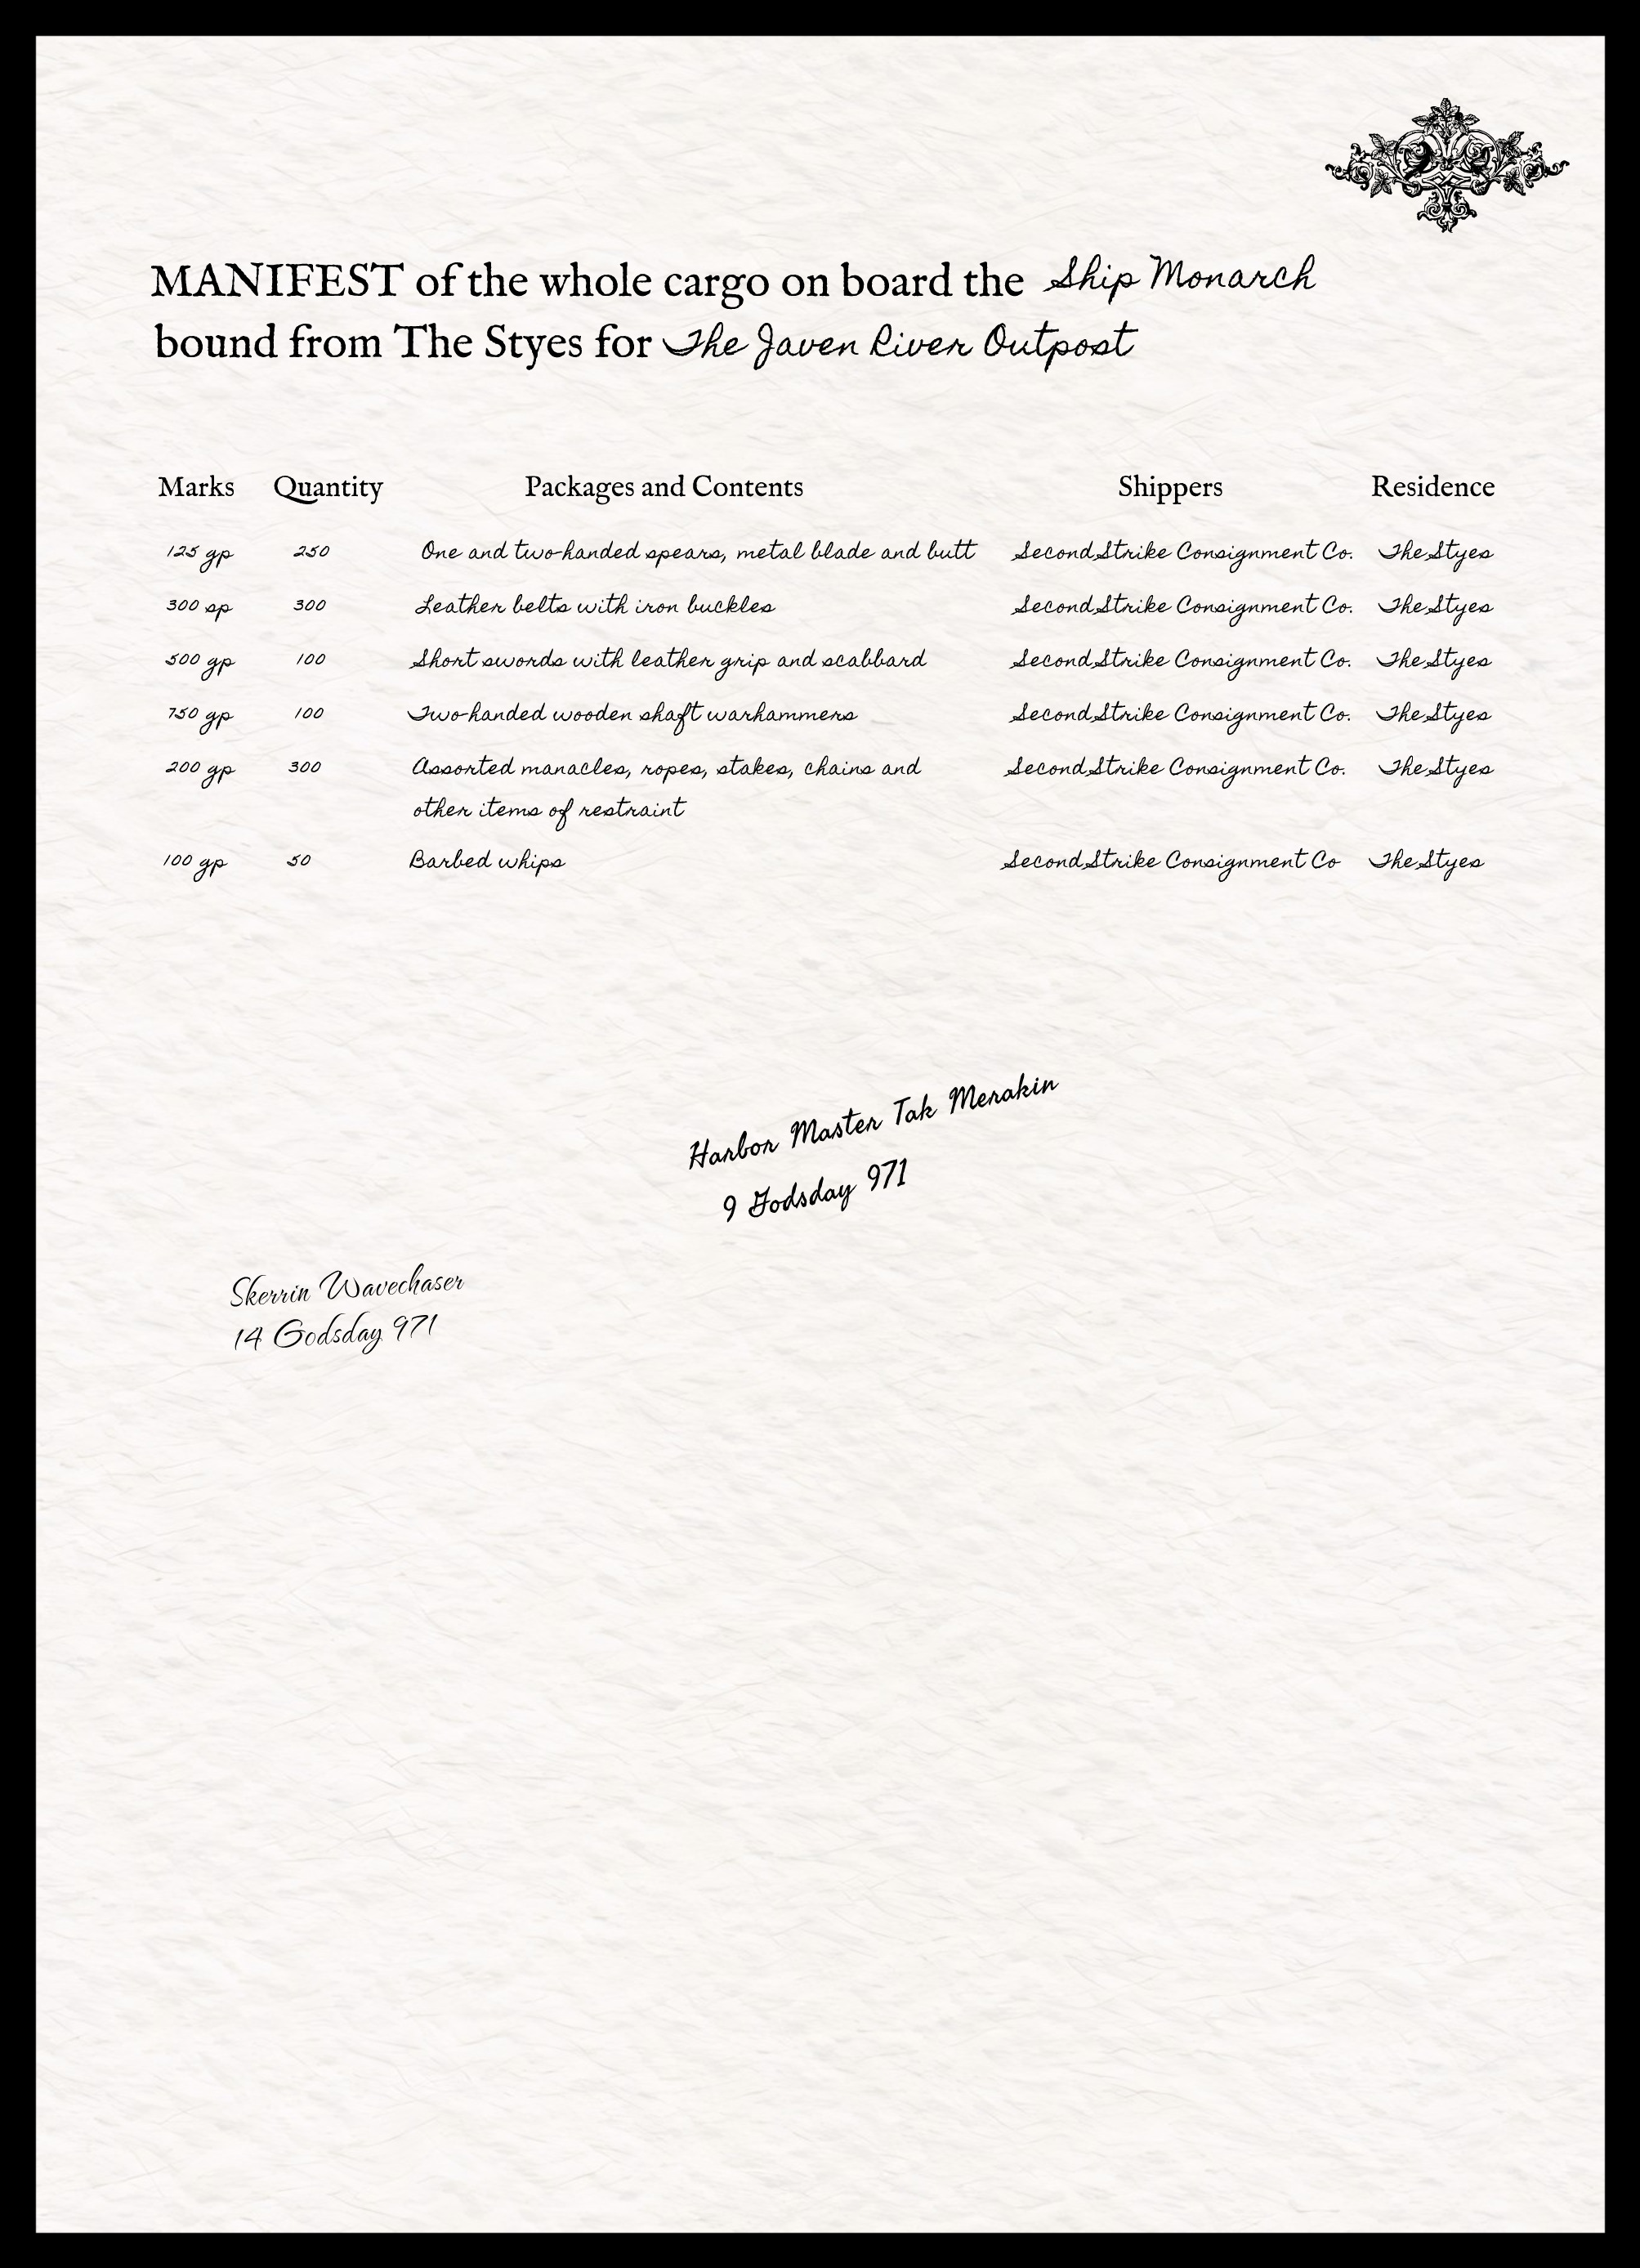 MANIFEST of the whole cargo on board the Ship Monarch
bound from The Styes for The Javen River Outpost
Marks Quantity Packages and Contents Shippers Residence
125 gp 250 One and two-handed spears, metal blade and butt Second Strike Consignment Co. The Styes
300 sp 300 Leather belts with iron buckles Second Strike Consignment Co. The Styes
500 gp 100 Short swords with leather grip and scabbard Second Strike Consignment Co. The Styes
750 gp 100 Two-handed wooden shaft warhammers Second Strike Consignment Co. The Styes
200 gp 300 Assorted manacles, ropes, stakes, chains and Second Strike Consignment Co. The Styes
other items of restraint
100 gp 50 Barbed whips Second Strike Consignment Co The Styes
Harbor Master Tak Merakin
9 Godsday 971
Skerrin Wavechaser
14 Godsday 971